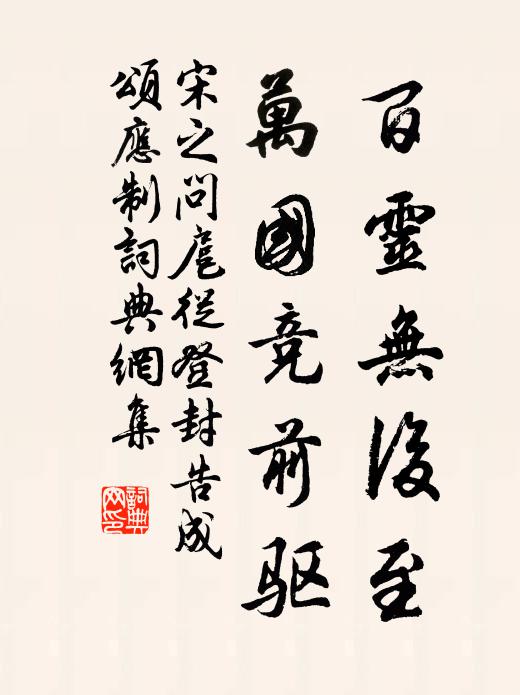 百靈無後至
萬國競前驱
宋之問扈從登封告成
頌應制詞典網集
詞典网印